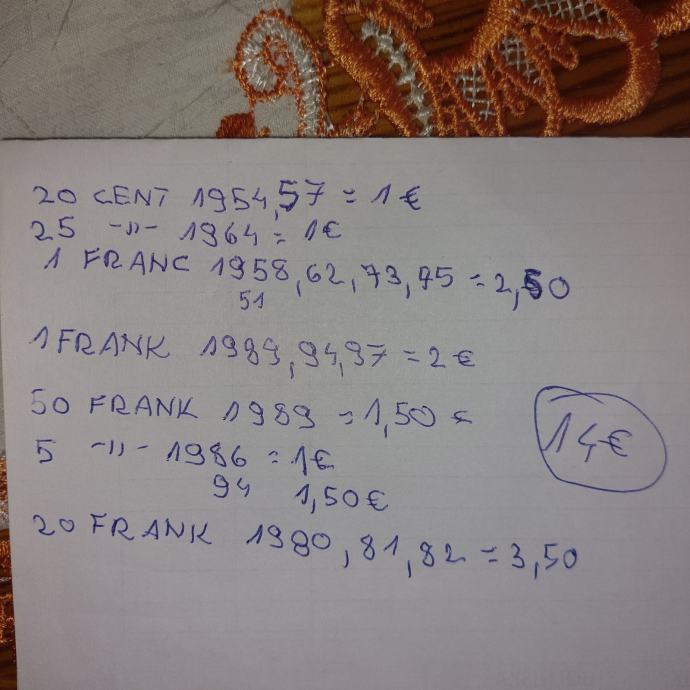 20 CENT 1954,57 = 1 €
25 -"- 1964 = 1€
1 FRANC 1958,62,73,75 = 2,50
51
1 FRANK 1989,94,97 = 2 €
50 FRANK 1989 = 1,50 €
14€
5 -"- 1986 = 1€
94 1,50€
20 FRANK 1980,81,82 = 3,50